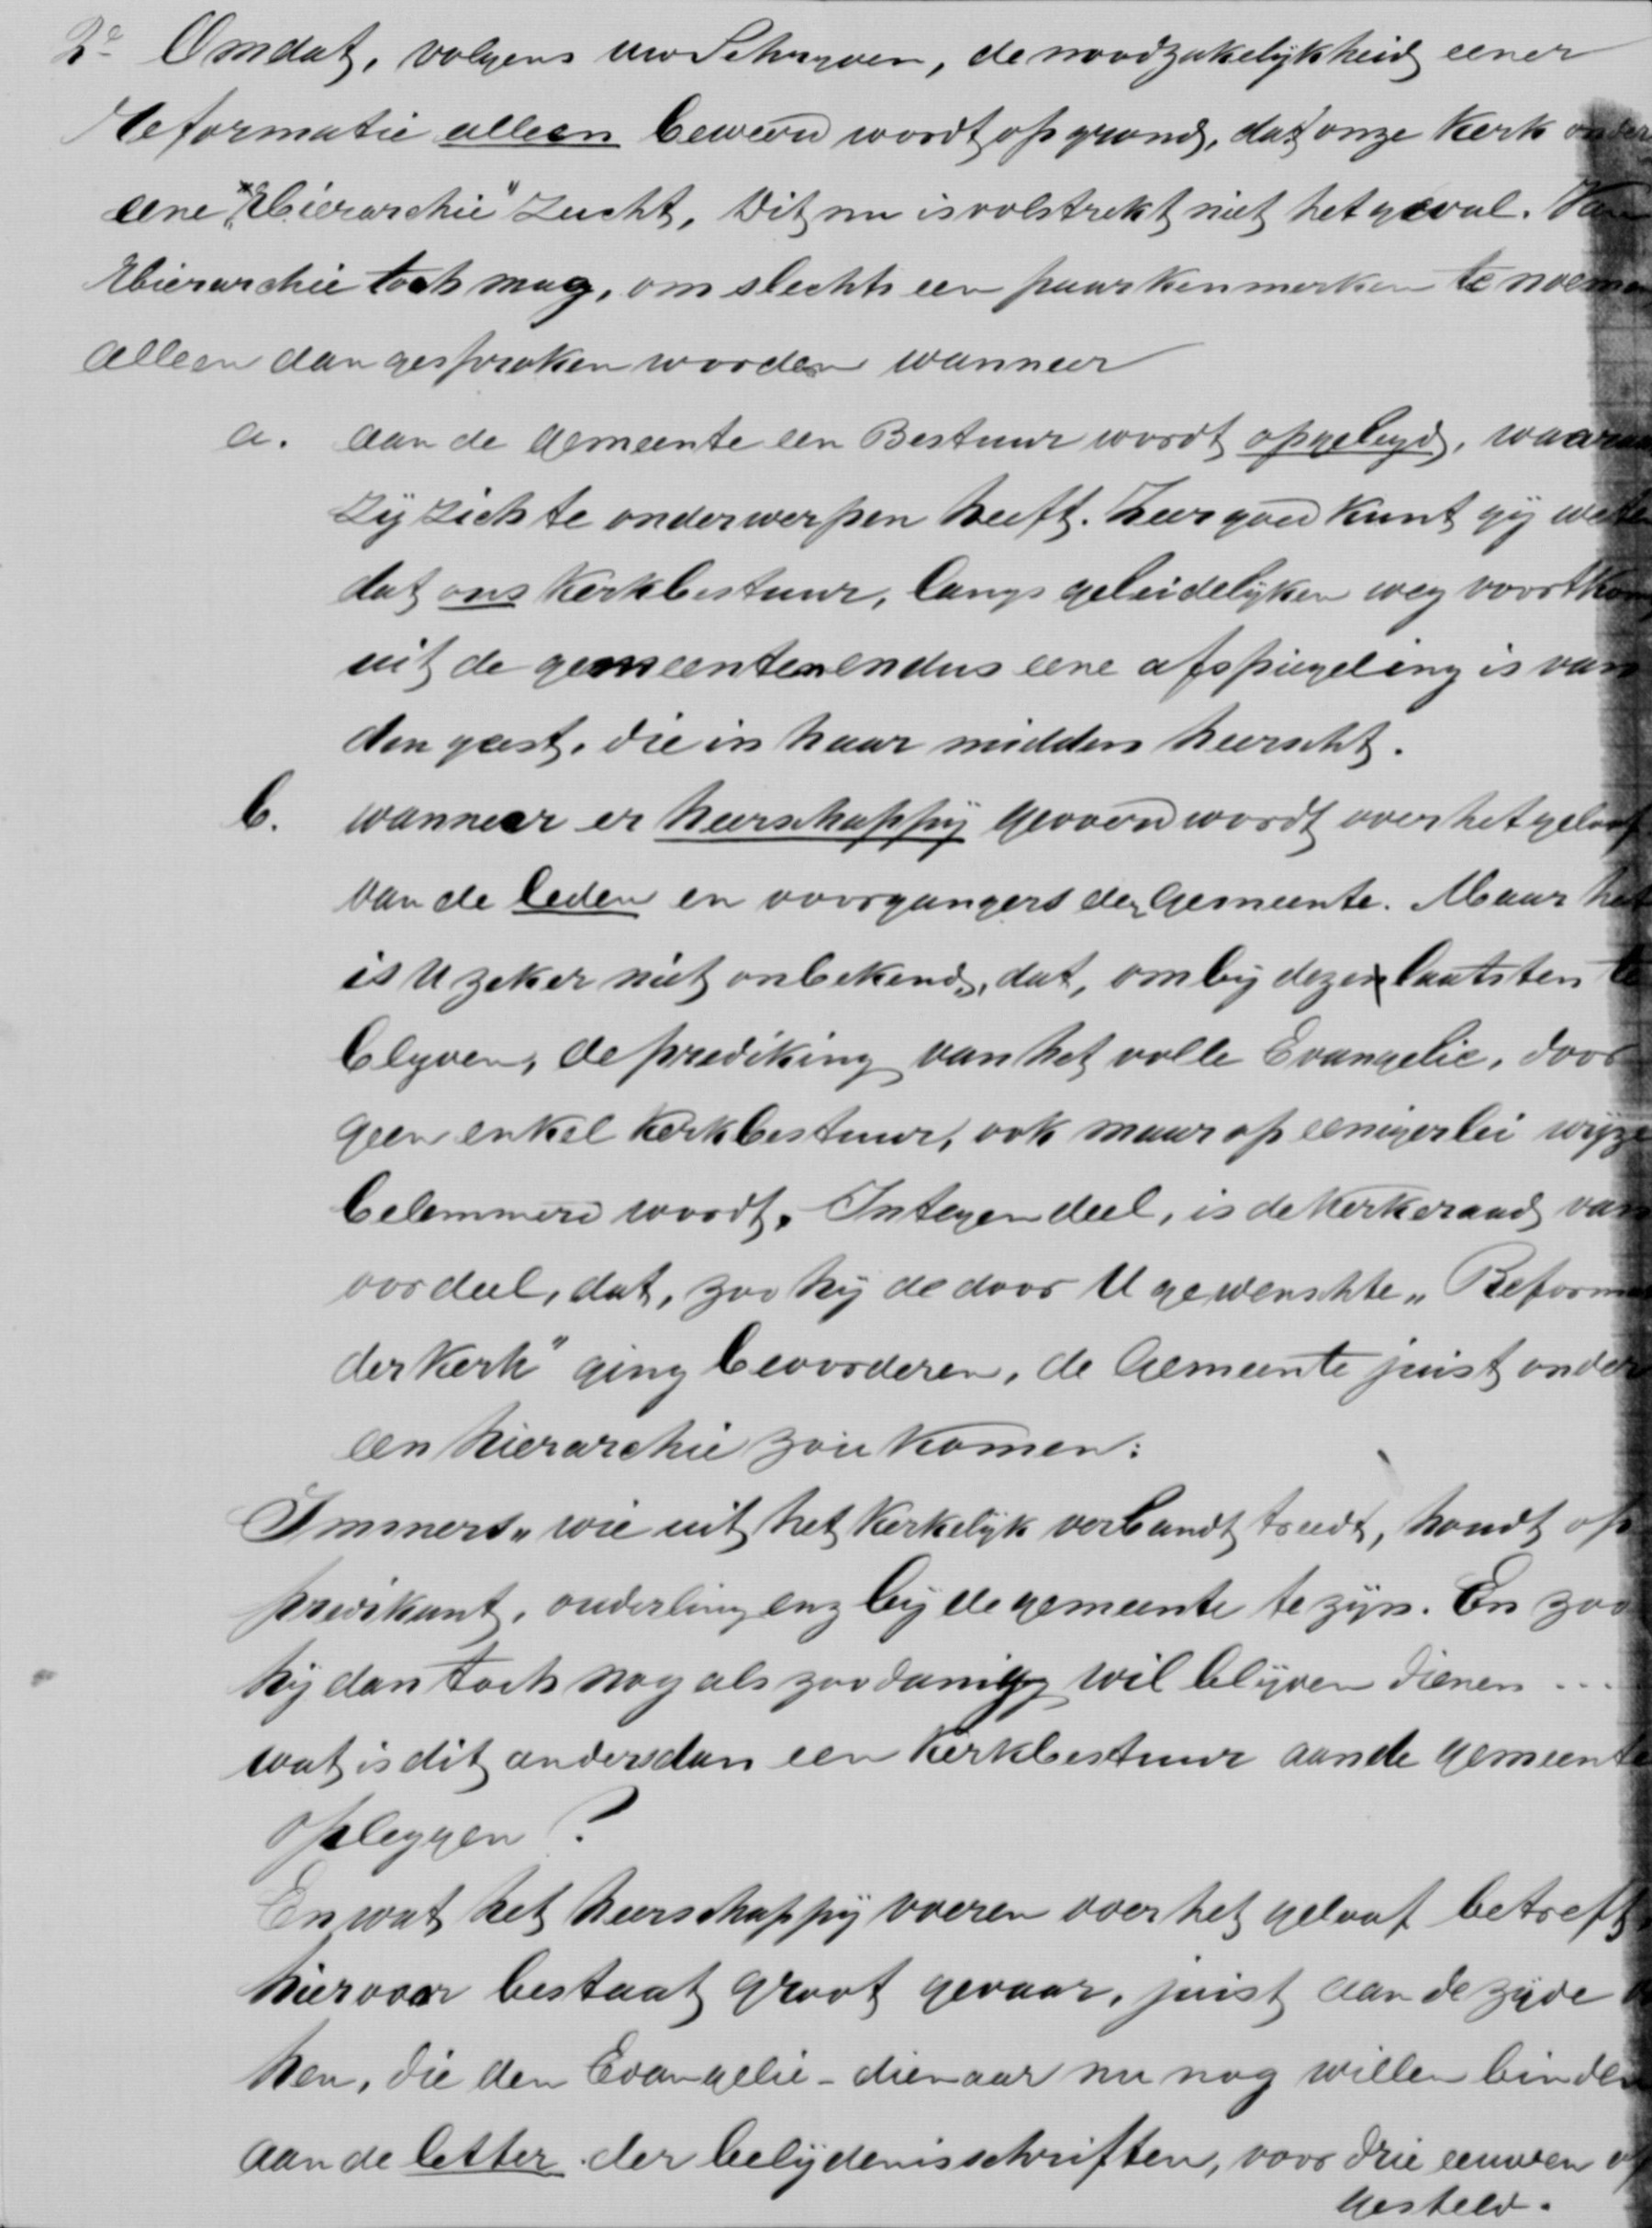 2e Omdat, volgens uw Schryven, de noodzakelykheid eener
Reformatie alleen beweerd wordt op grond, dat onze Kerk onder
eene "Hiërarchie" zucht, Dit nu is volstrekt niet het geval. Van
Hierarchie toch mag, om slechts een paar kenmerken te noemen
alleen dan gesproken worden wanneer
a. aan de gemeente een Bestuur wordt opgelegd, waaraan
zij zich te onderwerpen heeft. Zeer goed kunt gij weten
dat ons kerkbestuur, langs geleidelijken weg voortkomt
uit de gemeenten en dus eene afspiegeling is van
den geest, die in haar midden heerscht.
b. wanneer er heerschappij gevoerd wordt over het geloof
van de leden en voorgangers der Gemeente. Maar het
is U zeker niet onbekend, dat, om bij deze laatsten te
blyven, de prediking van het volle Evangelie, door
geen enkel kerkbestuur, ook maar op eenigerlei wijze
belemmerd wordt. Integendeel, is de kerkeraad van
oordeel, dat, zoo hij de door U gewenschte „Reformatie
der Kerk" ging bevorderen, de Gemeente juist onder
een hierarchie zou komen:
Immers „wie uit het Kerkelijk verbandt treedt, houdt op
predikant, ouderling enz bij de gemeente te zijn. En zoo
hij dan toch nog als zoodanig wil blijven dienen ...
wat is dit anders dan een kerkbestuur aan de gemeente
opleggen?
En wat het heerschappij voeren over het geloof betreft
hiervoor bestaat groot gevaar, juist aan de zijde
hen, die den Evangelie-dienaar nu nog willen binden
aan de letter der belijdenisschriften, voor drie eeuwen op
gesteld.